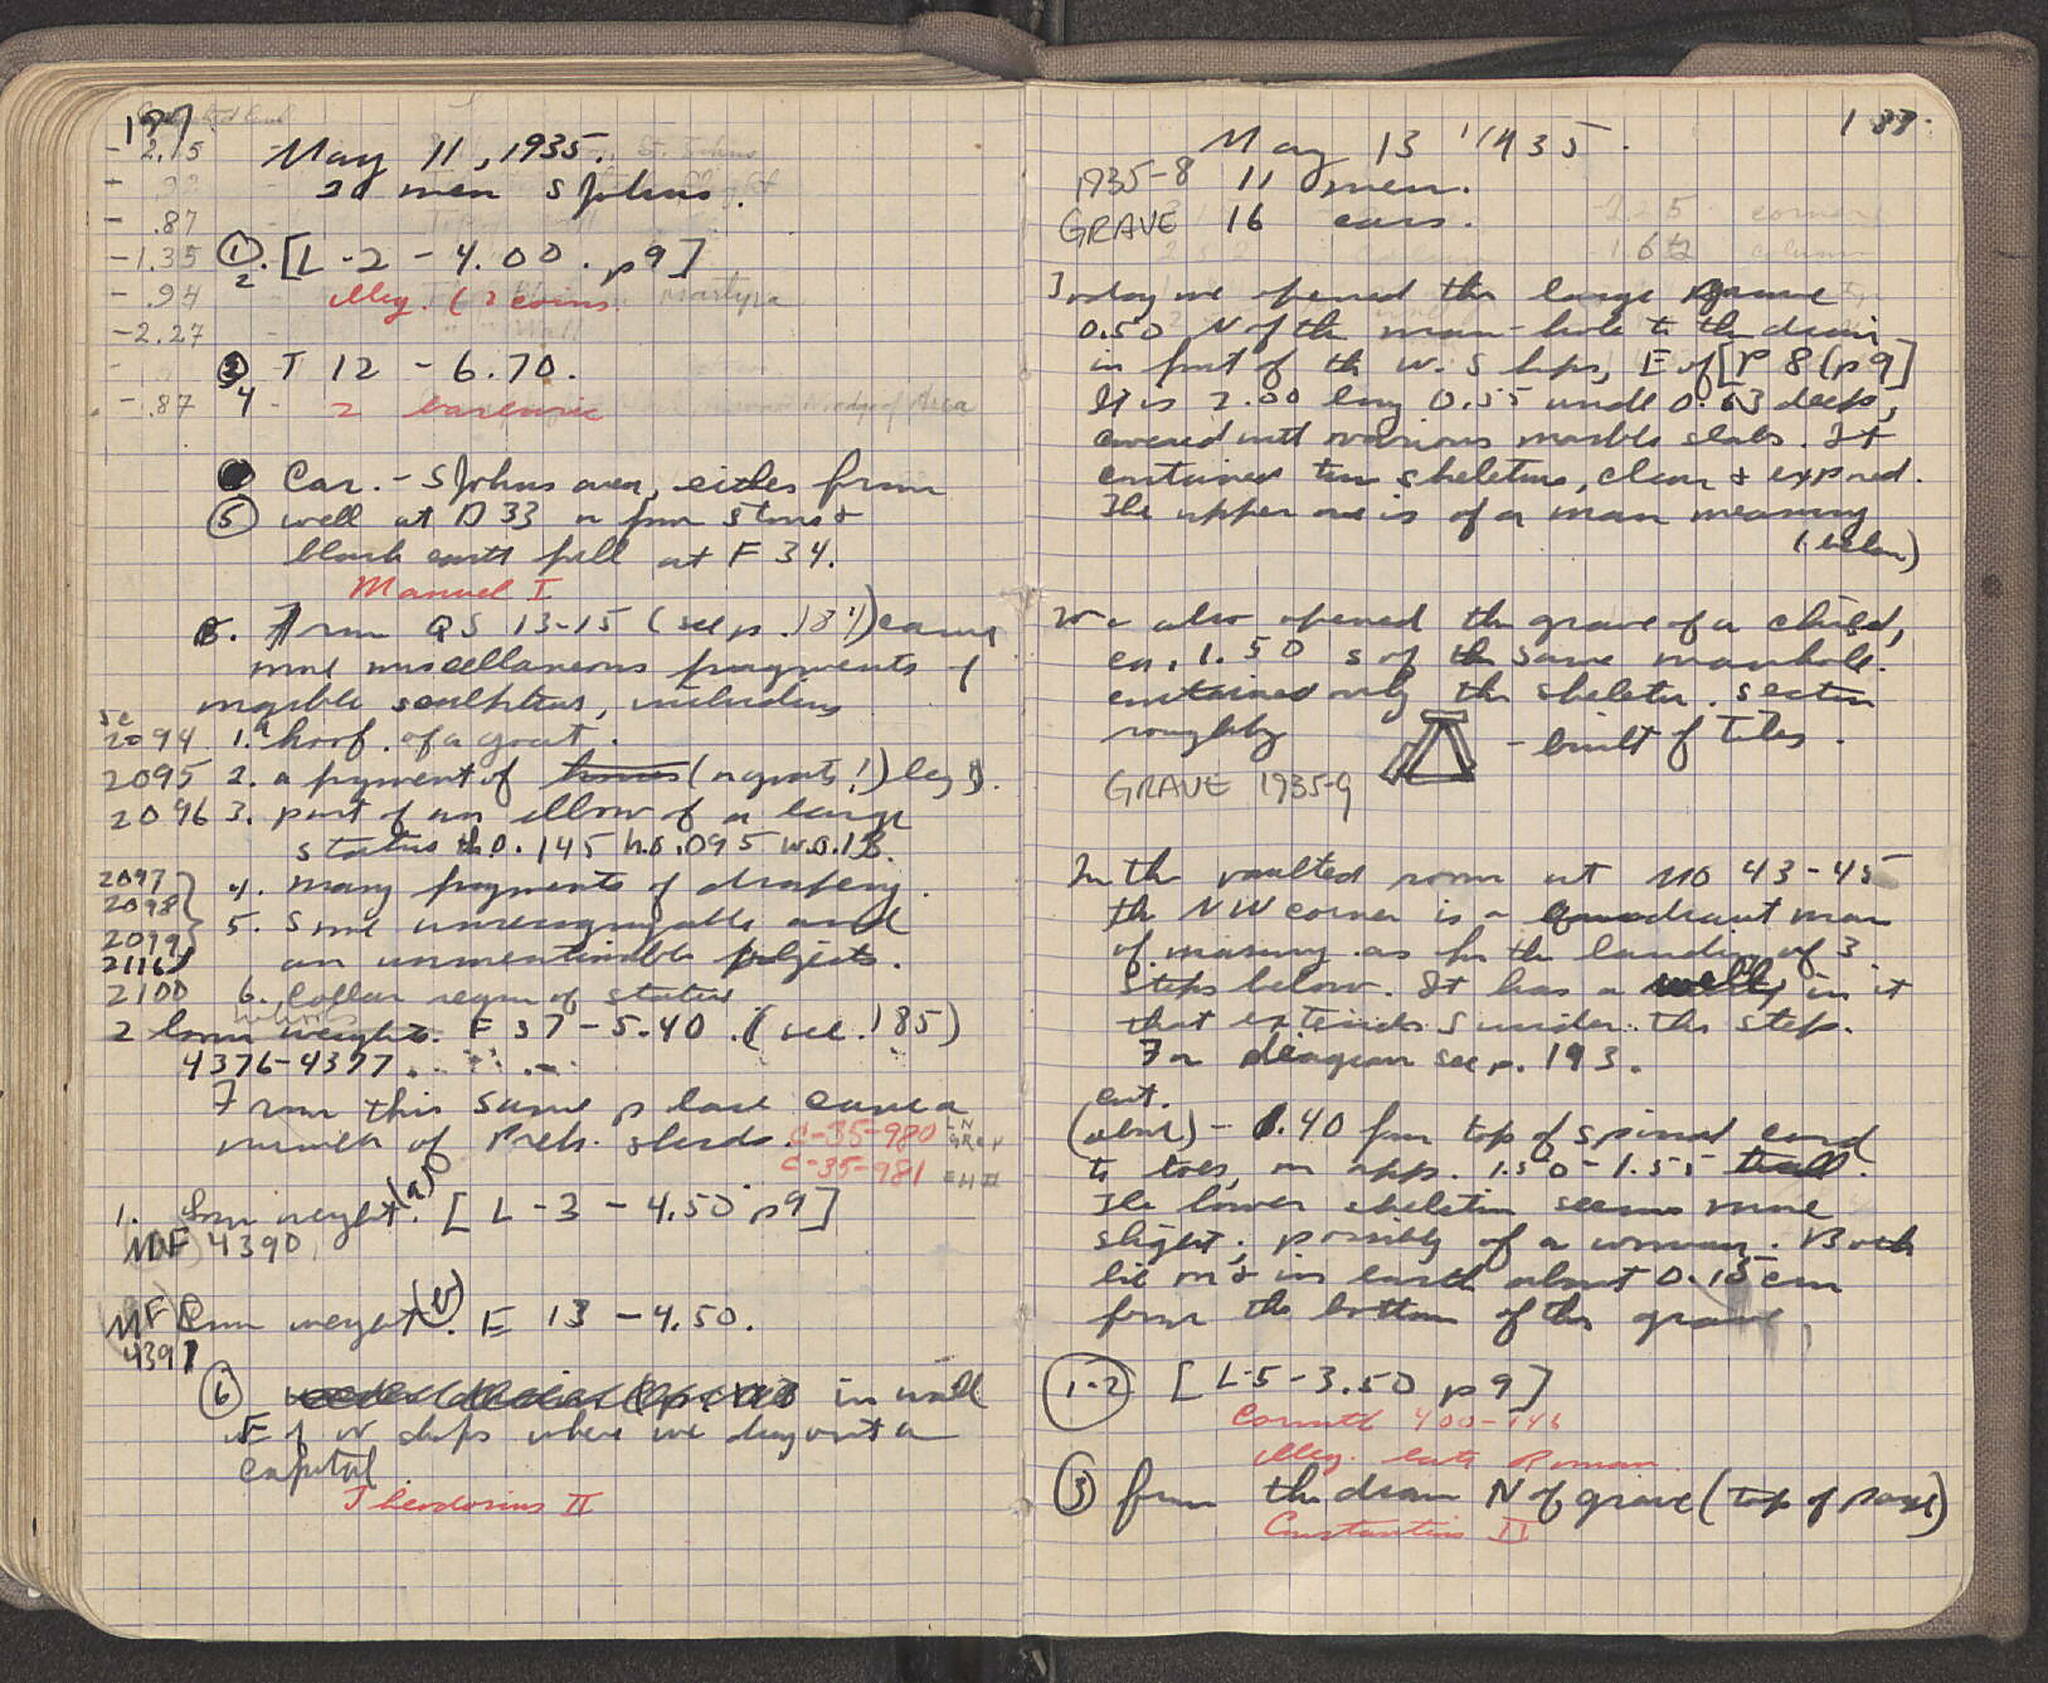 May 11, 1935.
20 men S Johns.
- 2.15
- .87
- 1.35
- .94
- 2.27
- .87
1. [L - 2 - 4.00. p 9]
2
Illeg. (2 coins.
3 T 12 - 6.70.
4 2 barbaric
Car. - S Johns area, either from
5 well at D 33 or from stones &
black earth fill at F 34.
Manuel I
6. From QS 13-15 (see p. 184) came
more miscellaneous fragments of
marble sculpture, including
Sc
2094 1. a hoof of a goat.
2095 2. a fragment of (a goats!) leg
2096 3. part of an elbow of a large
statue th. 0.145 h. 0.095 w. 0.13.
2097 4. Many fragments of drapery.
2098
2099 5. Some unrecognizable and
2116 an unmentionable objects.
2100 6. Collar region of statue
2 loom weights. F 37 - 5.40. (see. 185)
4376-4377.
From this same place came a
number of Preh. sherds. C-35-980 LN GREY
C-35-981 EH II
1. Loom weight. (a) [L - 3 - 4.50 p 9]
MF 4390
MF Loom weight (b). E 13 - 4.50.
4391
6 in wall
E of W shops where we dug out a
capital.
Theodosius II
187
May 13 1935.
1935-8 11 men.
GRAVE 16 cars.
Today we opened the large grave
0.50 N of the man-hole to the drain
in front of the W. Shops, E of [P 8 (p 9]
It is 2.00 long 0.55 wide 0.63 deep,
covered with various marble slabs. It
contained two skeletons, clean & exposed.
The upper one is of a man measuring
(below)
We also opened the grave of a child,
ca. 1.50 S of the same manhole.
contained only the skeleton. Section
roughly - built of tiles.
GRAVE 1935-9
In the vaulted room at MO 43-45
the NW corner is a quadrant mass
of masonry as for the landing of 3
steps below. It has a well in it
that extends S under the steps.
For diagram see p. 193.
cut.
(above) - 1.40 from top of spinal cord
to toes, or app. 1.50-1.55 tall.
The lower skeleton seems more
slight; possibly of a woman. Both
lie on & in earth about 0.15 cm
from the bottom of the grave.
1-2 [L-5-3.50 p 9]
Corinth 400-146
Illeg. late Roman.
3 from the drain N of grave (top of page)
Constantius II